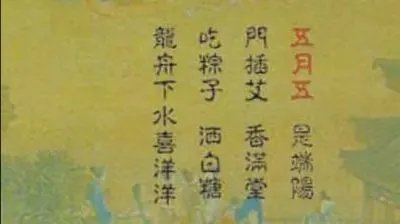 五月五 是端陽
門插艾 香滿堂
吃粽子 洒白糖
龍舟下水喜洋洋